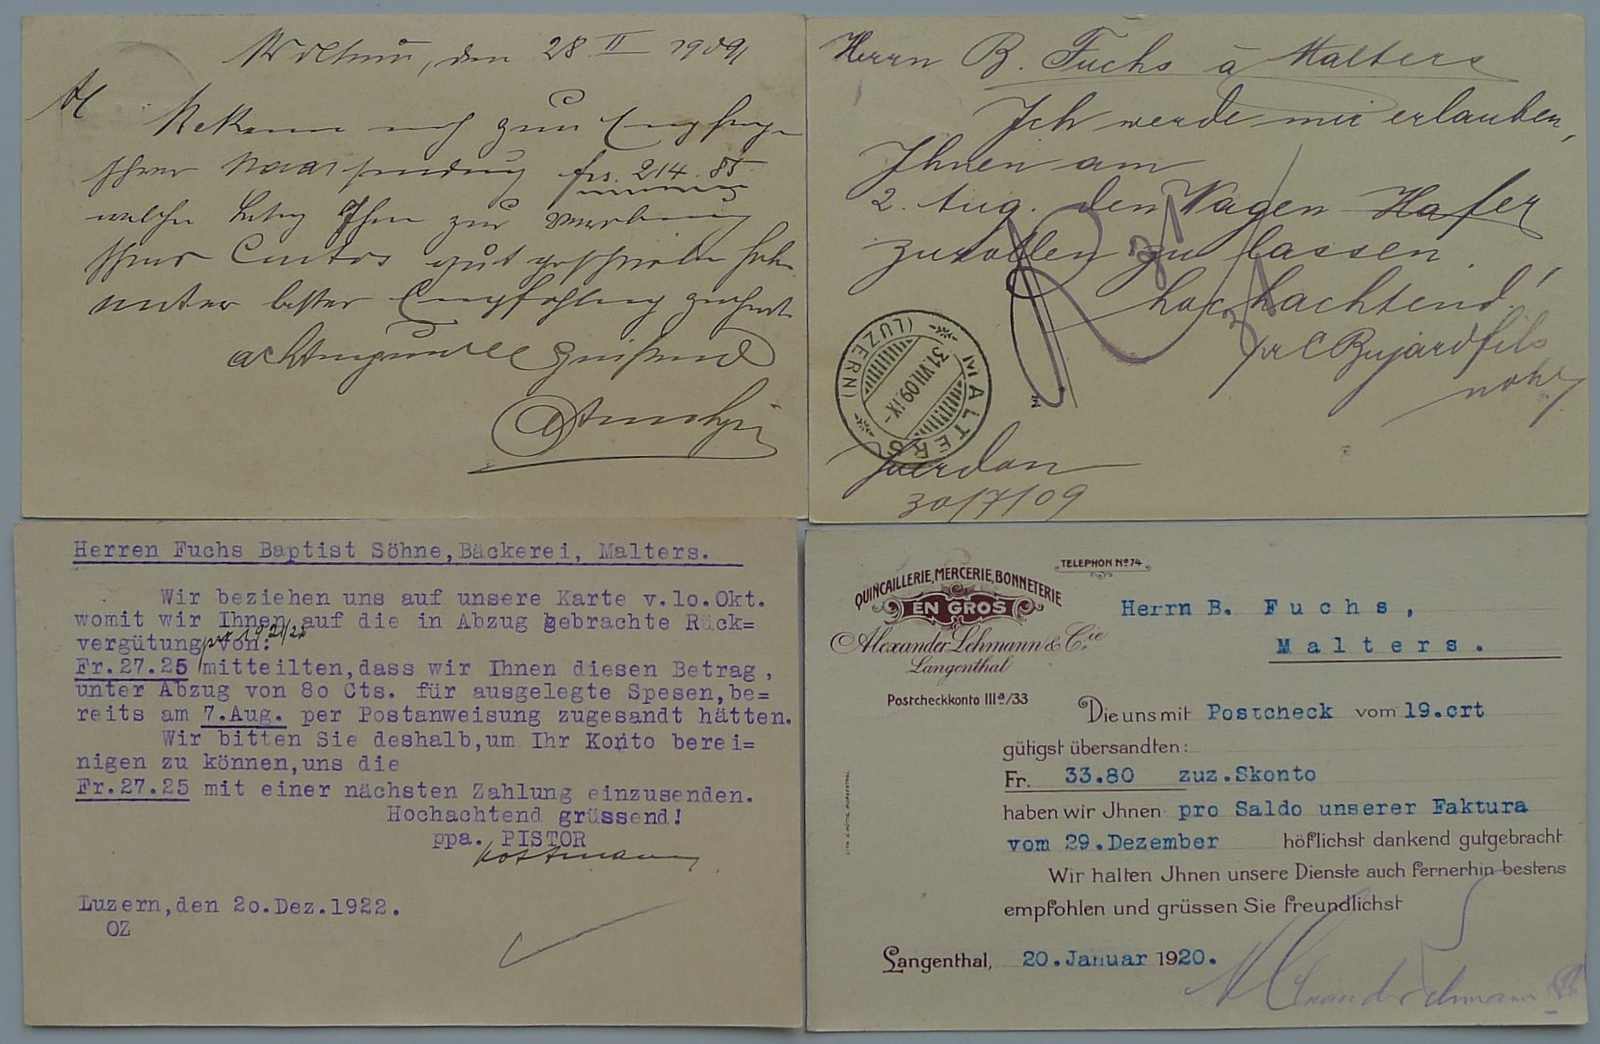 den 28 II 1909
Bekenne mich zum Empfange
Ihrer Baarsendung frs. 214.85
welche Betrag Ihnen zur
Ihres Contos gut geschrieben habe
unter bester Empfehlung zeichnet
achtungsvoll grüssend
Herrn B. Fuchs à Malters
Ich werde mir erlauben,
Ihnen am
2. Aug. den Wagen Hafer
zurollen zu lassen.
hochachtend!
pr C Bujard fils
MALTERS
(LUZERN)
31.VII.09.IX-
Yverdon
30/7/09
Herren Fuchs Baptist Söhne, Bäckerei, Malters.
Wir beziehen uns auf unsere Karte v.10.Okt.
womit wir Ihnen auf die in Abzug gebrachte Rück=
vergütung pr 1921/22 von:
Fr.27.25 mitteilten,dass wir Ihnen diesen Betrag,
unter Abzug von 80 Cts. für ausgelegte Spesen,be=
reits am 7.Aug. per Postanweisung zugesandt hätten.
Wir bitten Sie deshalb,um Ihr Konto berei=
nigen zu können,uns die
Fr.27.25 mit einer nächsten Zahlung einzusenden.
Hochachtend grüssend!
ppa. PISTOR
Luzern,den 20.Dez.1922.
OZ
TELEPHON No 74
QUINCAILLERIE, MERCERIE, BONNETERIE
EN GROS
Alexander Lehmann & Cie
Langenthal
Postcheckkonto IIIa/33
Herrn B. Fuchs,
Malters.
Die uns mit Postcheck vom 19.crt
gütigst übersandten:
Fr. 33.80 zuz.Skonto
haben wir Jhnen pro Saldo unserer Faktura
vom 29.Dezember höflichst dankend gutgebracht
Wir halten Jhnen unsere Dienste auch fernerhin bestens
empfohlen und grüssen Sie freundlichst
Langenthal, 20.Januar 1920.